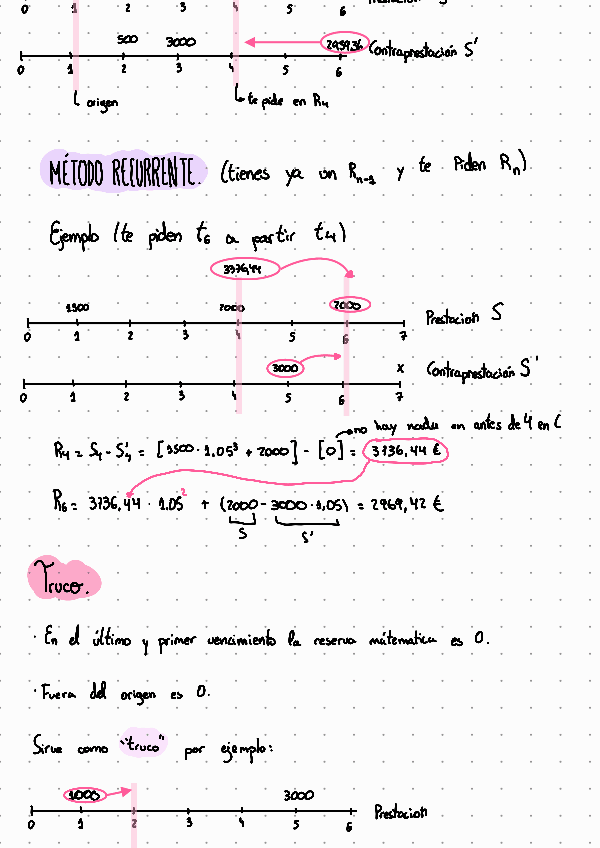 0 1 2 3 4 5 6
500 3000 2959,36 Contraprestación S'
0 1 2 3 4 5 6
origen te pide en R4
MÉTODO RECURRENTE. (tienes ya un Rn-1 y te Piden Rn)
Ejemplo (te piden t6 a partir t4)
3736,44
1500 2000 2000 Prestacion S
0 1 2 3 4 5 6 7
3000 x Contraprestación S'
0 1 2 3 4 5 6 7
no hay nada en antes de 4 en C
R4 = S4 - S'4 = [1500 · 1.05³ + 2000] - [0] = 3736,44 €
R6 = 3736,44 · 1.05² + (2000 - 3000 · 1,05) = 2969,42 €
S S'
Truco.
· En el último y primer vencimiento la reserva mátematica es 0.
· Fuera del origen es 0.
Sirve como "truco" por ejemplo:
1000 3000 Prestacion
0 1 2 3 4 5 6